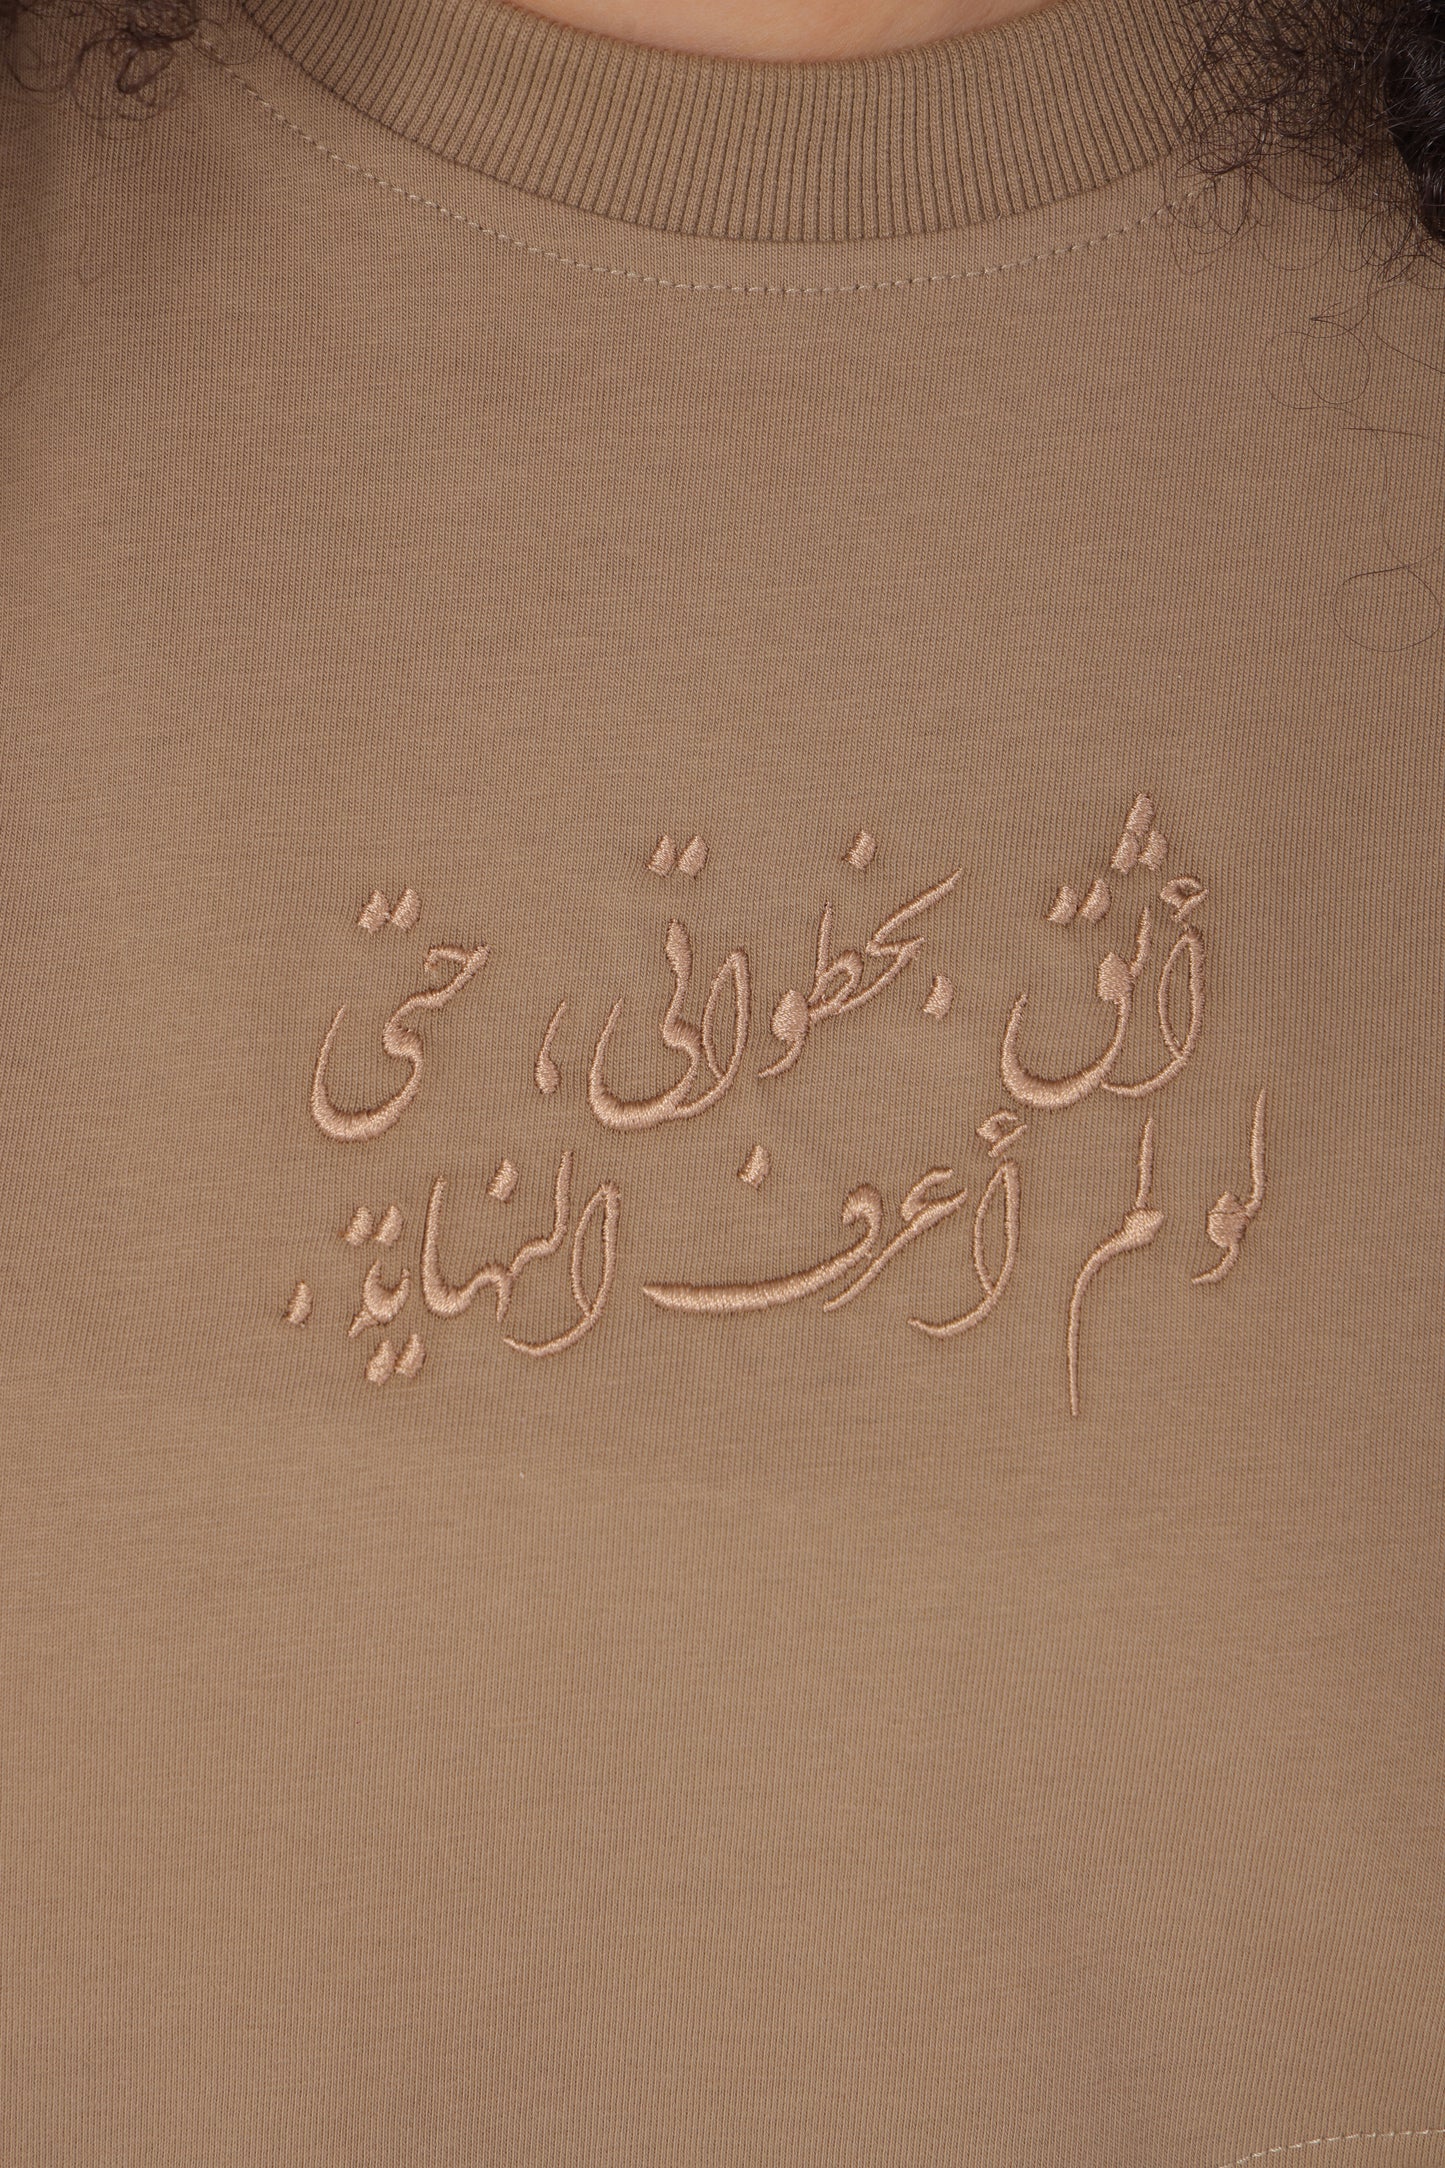 أثق بخطواتي، حتى
لو لم أعرف النهاية.